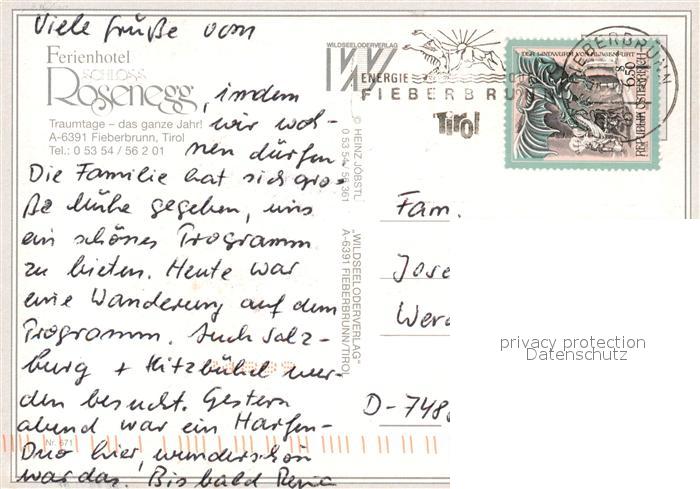 Viele Grüße vom
Ferienhotel
SCHLOSS
Rosenegg
, indem
Traumtage – das ganze Jahr!
A-6391 Fieberbrunn, Tirol
Tel.: 0 53 54 / 56 2 01
wir woh-
nen dürfen.
Die Familie hat sich gro-
ße Mühe gegeben, uns
ein schönes Programm
zu bieten. Heute war
eine Wanderung auf dem
Programm. Auch Salz-
burg + Kitzbühel wer-
den besucht. Gestern
abend war ein Harfen-
Duo hier, wunderschön
war das. Bis bald
Nr. 671
WILDSEELODERVERLAG
© HEINZ JÖBSTL
0 53 54 / 56 3 61
"WILDSEELODERVERLAG"
A-6391 FIEBERBRUNN/TIROL
ENERGIE
FIEBERBRUNN
Tirol
DER LINDWURM VON KLAGENFURT
6.50
REPUBLIK ÖSTERREICH
FIEBERBRUNN
Fam.
Jose
D-748
privacy protection
Datenschutz